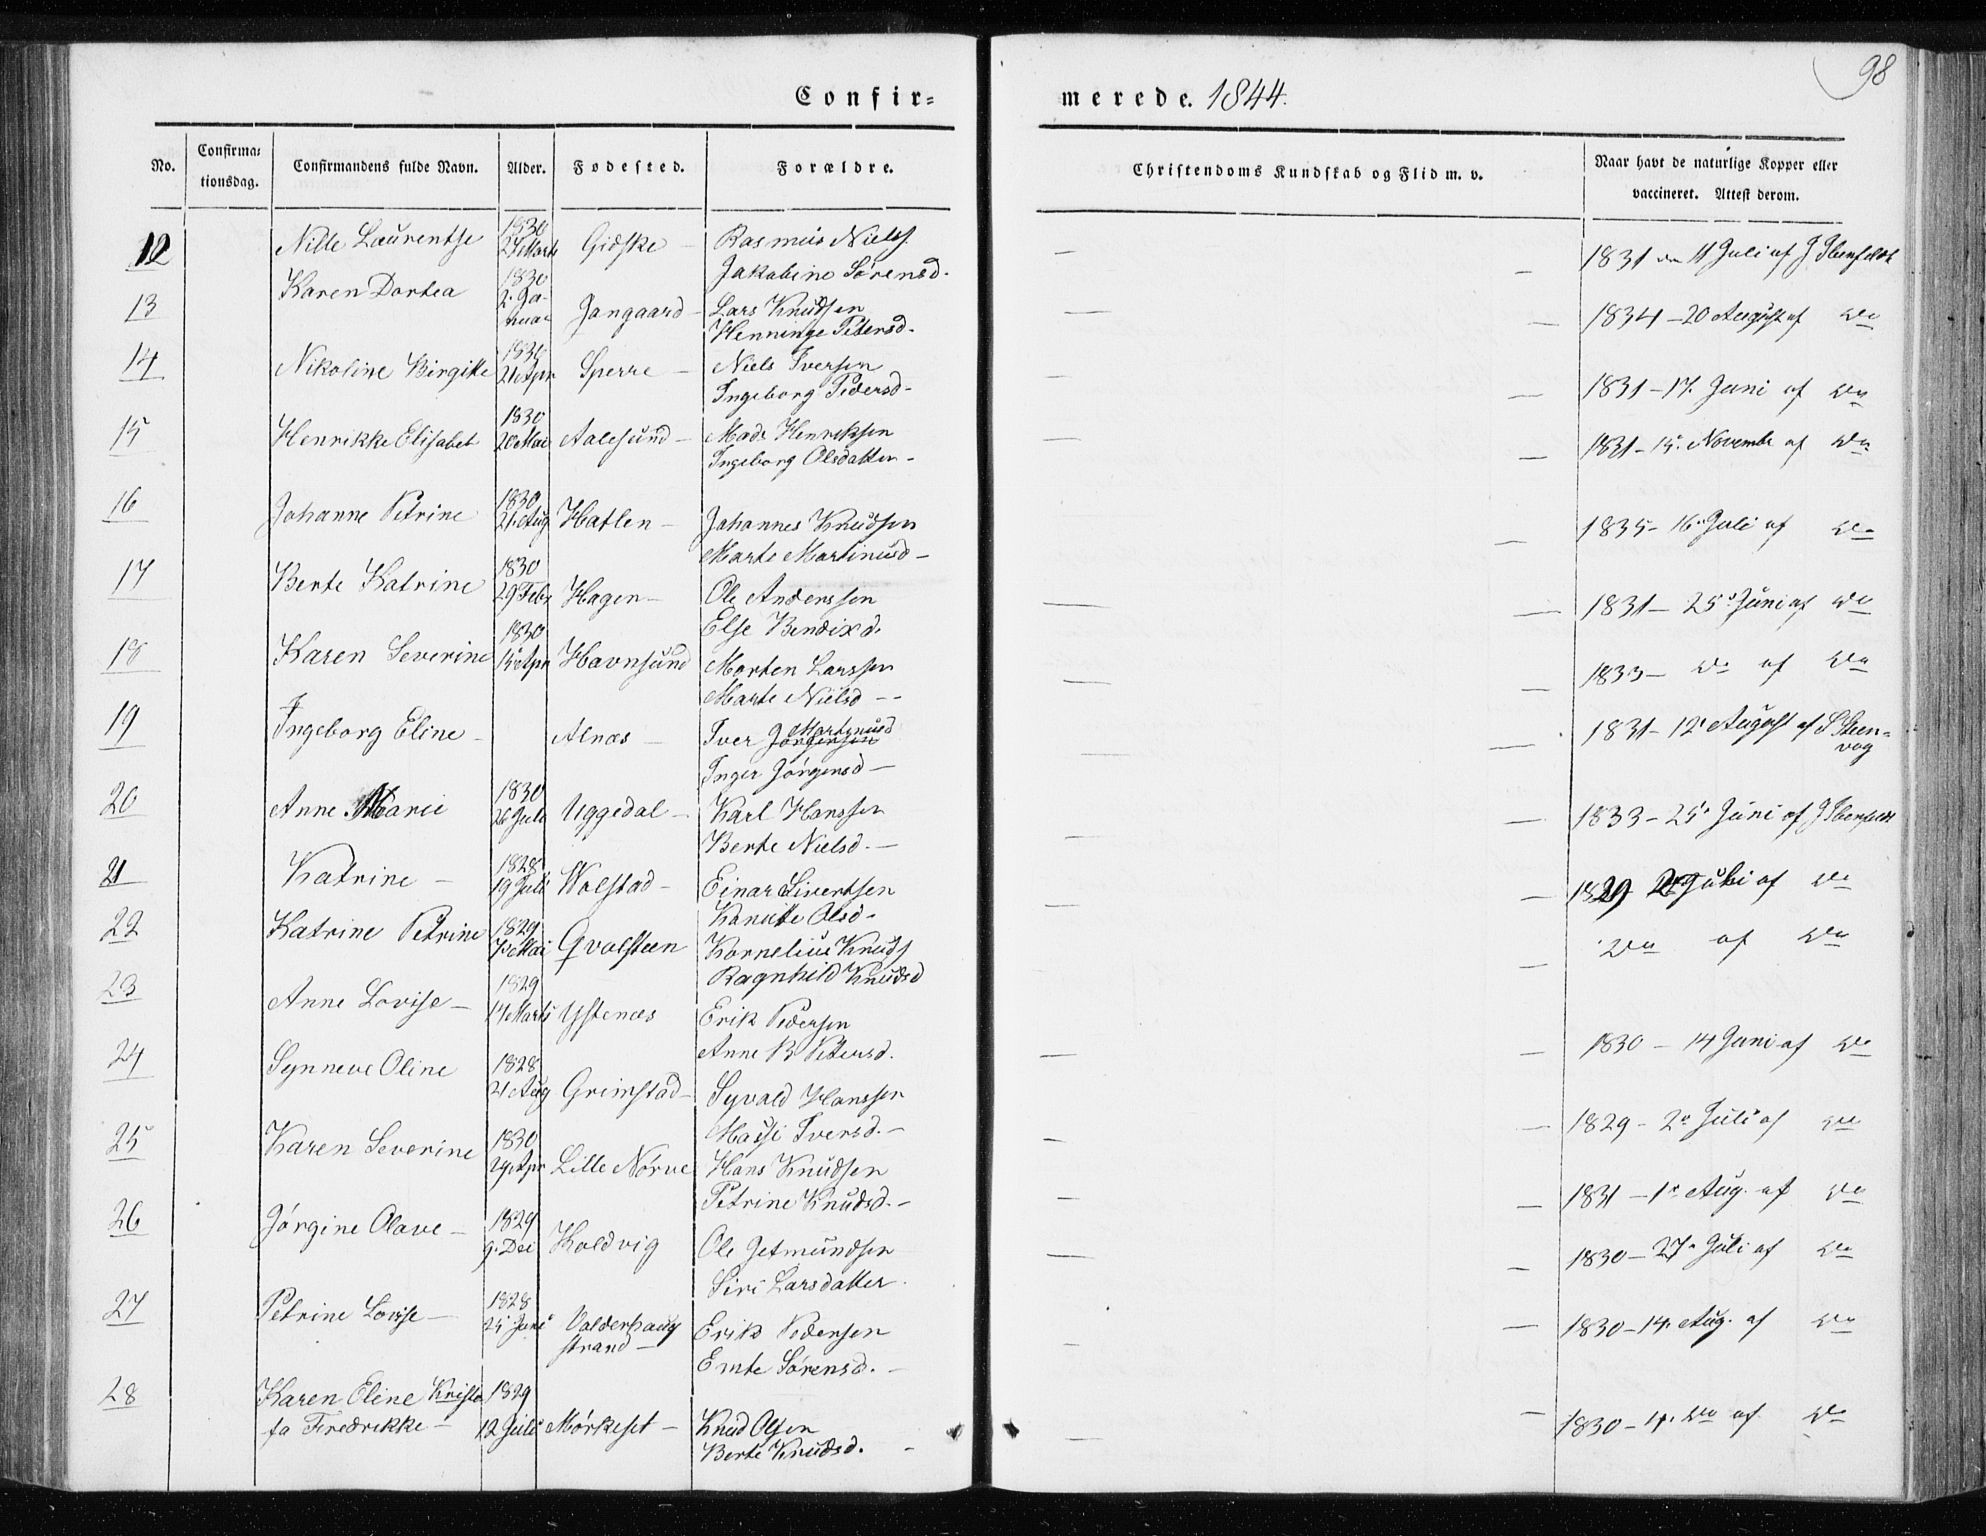 98
Confir=
merede. 1844.
No.
Confirma=
tionsdag.
Confirmandens fulde Navn.
Alder.
Fødested.
Forældre.
Christendoms Kundskab og Flid m. v.
Naar havt de naturlige Kopper eller
vaccineret. Attest derom.
12 Nille Laurentse 1830 27 Marts Gidske - Rasmus Niels. Jakobine Sørensd. - 1831 den 11 Juli af J Ibenfeldt
13 Karen Dortea 1830 2. Ja- nuar Gangaard - Lars Knudsen Henninge Petersd. 1834 - 20 August af do
14 Nikoline Birgitte 1830 21 Apr Sperre - Niels Iversen Ingeborg Pedersd - 1831 - 17. Juni af do
15 Henrikke Elisabet 1830 20 Mai Aalesund - Mads Henriksen Ingeborg Olsdatter - 1831 - 15. Novembr af do
16 Johanne Petrine 1830 21. Aug Hatlen - Johannes Knudsen Marte Martinusd - 1835 - 16. Juli af do
17 Berte Katrine 1830 29 Febr Hagen - Ole Anderssen Else Bendixd. 1831 - 25. Juni af do
18 Karen Severine 1830 15 Apr Havnsund Morten Larssen Marte Nielsd - - 1833 - do af do
19 Ingeborg Eline - Alnæs - Iver Jørgensen Martinusd Inger Jørgensd - 1831 - 12. August af S Steen= vog
20 Anne Marie 1830 26 Juli Uggedal - Karl Hanssen Berte Nielsd. - 1833 - 25. Juni af J Ibenfeldt
21 Katrine - 1828 19 Juli Wolstad - Einar Sivertsen Kanutte Olsd - 1829 Juli af do
22 Katrine Petrine 1829 7. Mai Qvalsteen Kornelius Knuds Ragnhild Knudsd do af do
23 Anne Lovise - 1829 17 Marts Ystenæs Erik Pedersen Anne B Petersd. 1830 - 14 Juni af do
24 Synneve Oline 1828 21 Aug Grimstad - Syvald Hanssen Massi Iversd. - 1829 - 2. Juli af do
25 Karen Severine 1830 29. Apr Lille Nørve Hans Knudsen Petrine Knudsd. - 1831 - 1. Aug. af do
26 Jørgine Olave - 1829 9. Dec Koldvig Ole Getmundsen Siri Larsdatter. 1830 - 27. Juli af do
27 Petrine Lovise - 1828 25 Juni Valderhaug strand - Erik Pedersen Emte Sørensd. - 1830 - 14. Aug. af do
28 Karen Eline Kristo fa Fredrikke - 1829 12 Juli Mørkeset - Knud Olsen Berte Knudsd. - 1830 - 14. do af do